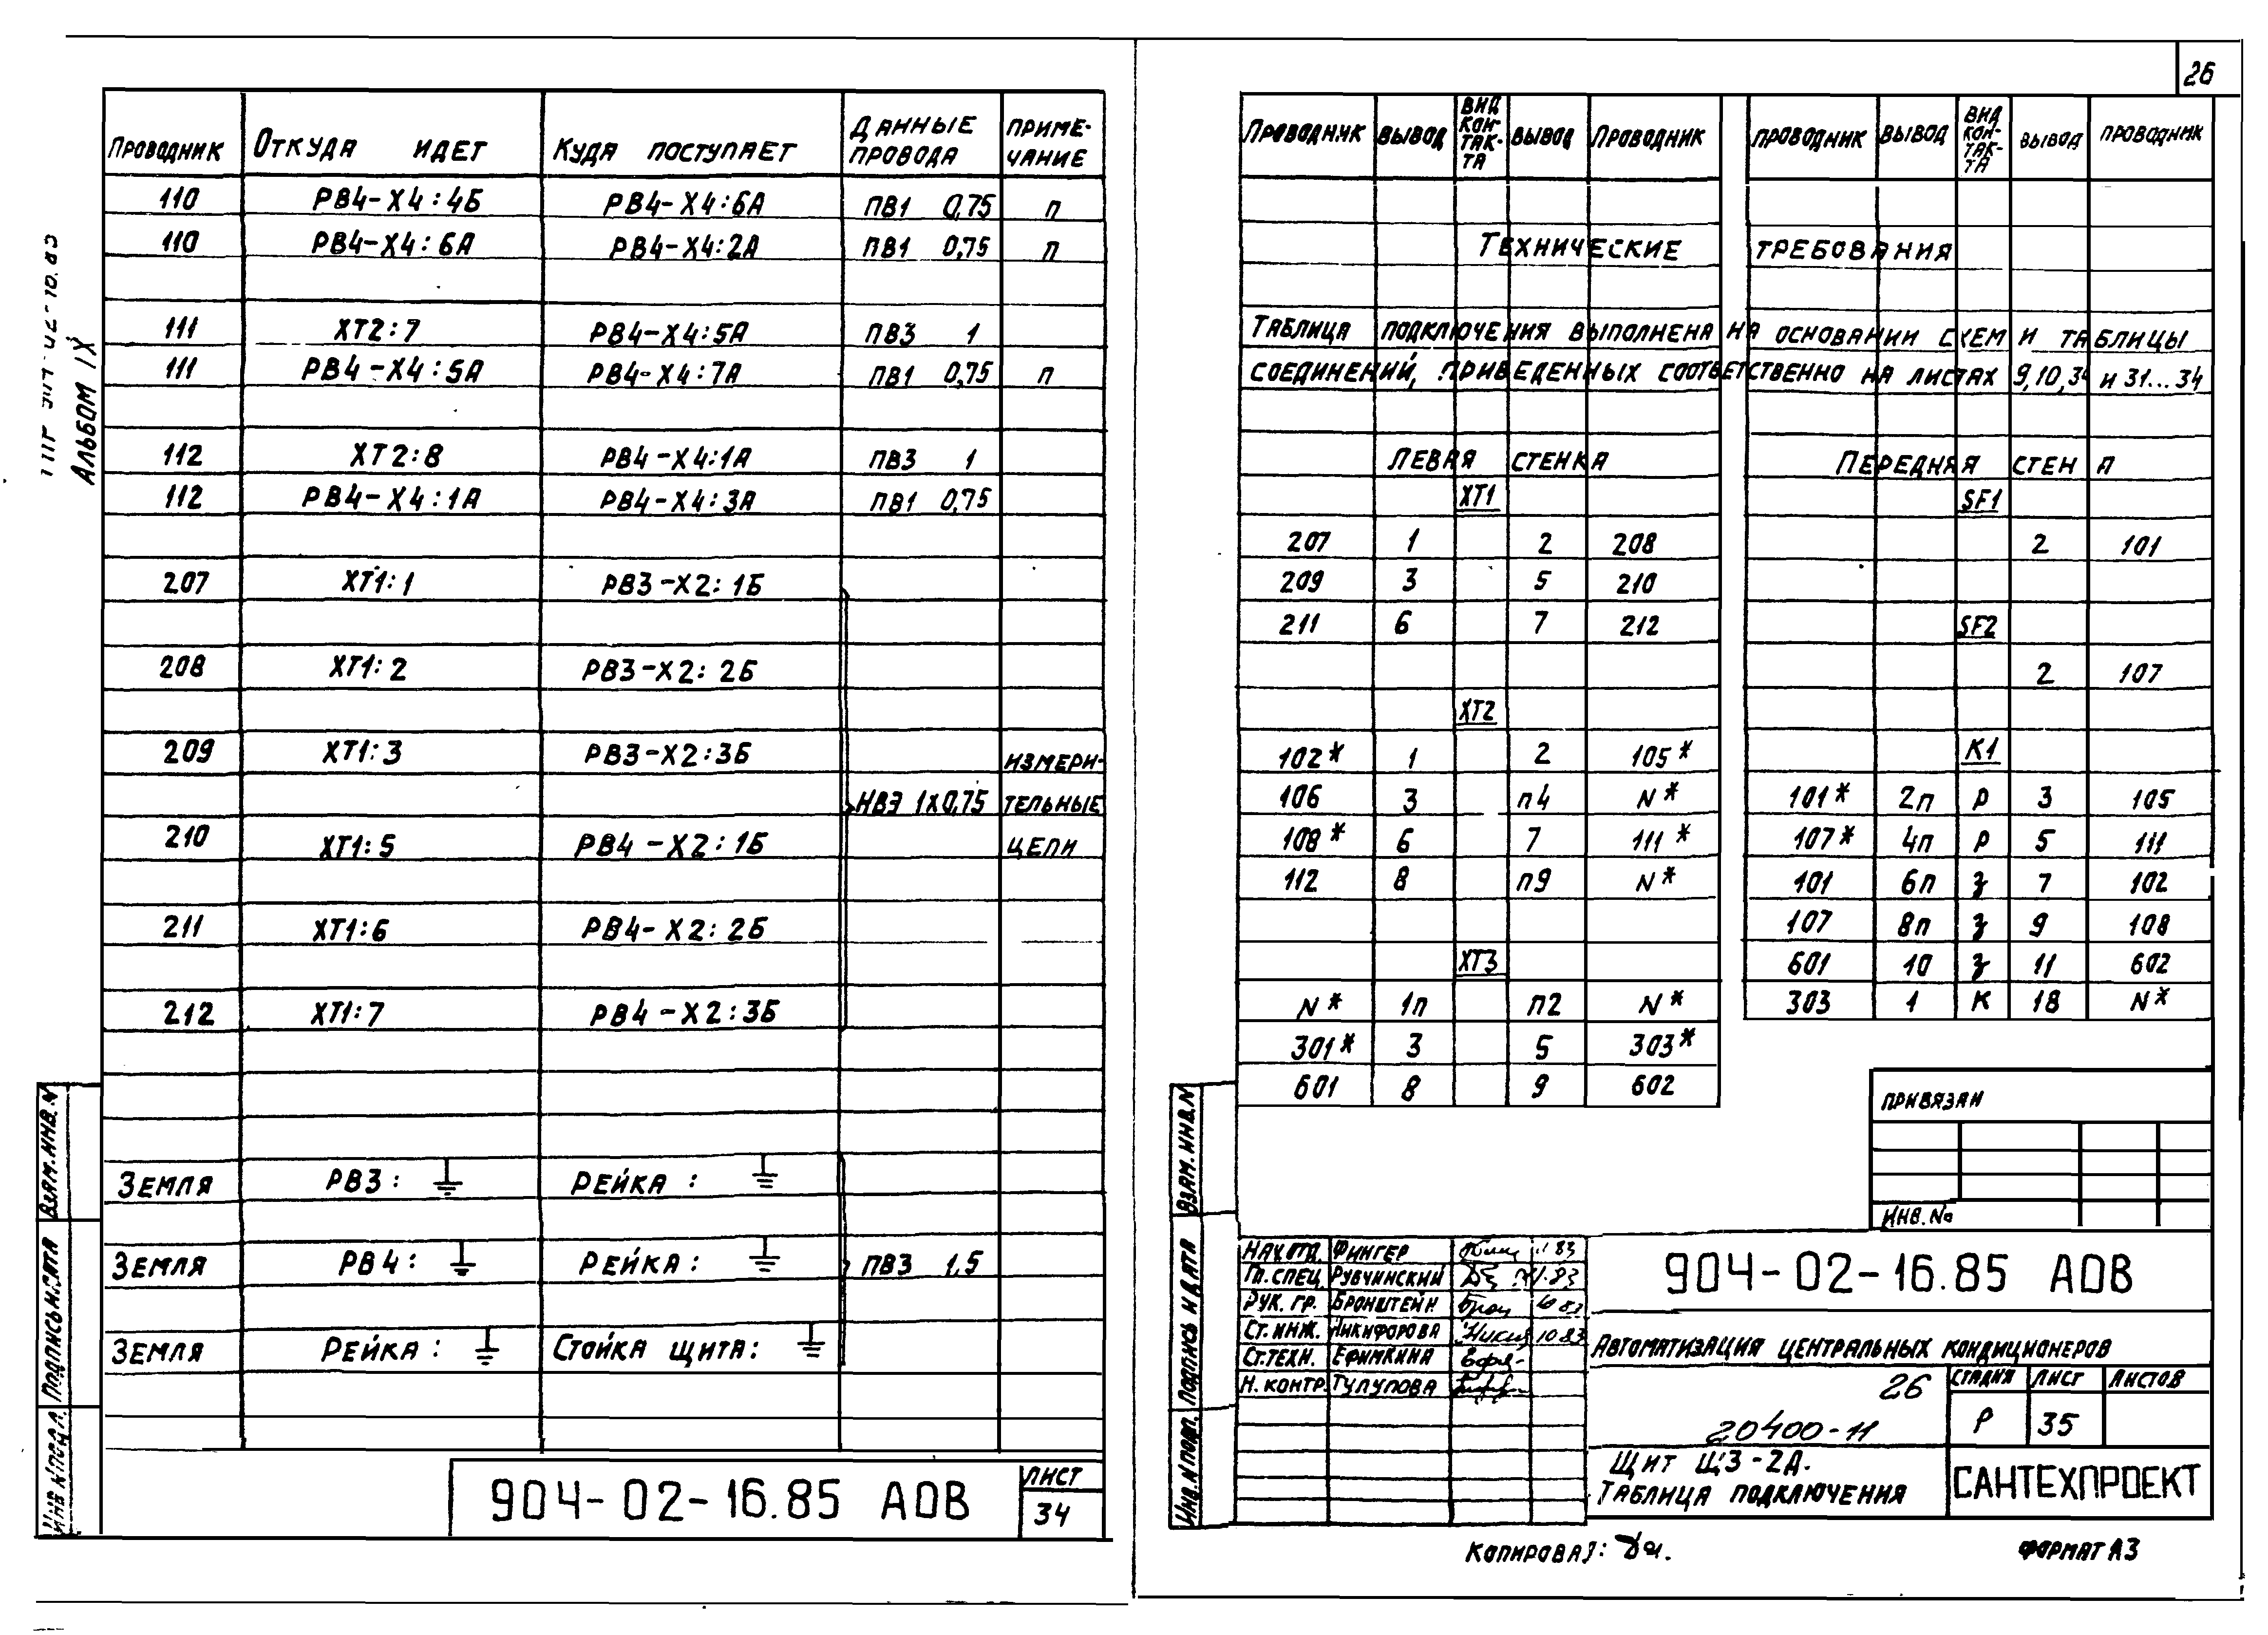 АЛЬБОМ IX
ПРОВОДНИК ОТКУДА ИДЕТ КУДА ПОСТУПАЕТ ДАННЫЕ ПРОВОДА ПРИМЕ-ЧАНИЕ
110 РВ4-Х4:4Б РВ4-Х4:6А ПВ1 0,75 П
110 РВ4-Х4:6А РВ4-Х4:2А ПВ1 0,75 П
111 ХТ2:7 РВ4-Х4:5А ПВ3 1
111 РВ4-Х4:5А РВ4-Х4:7А ПВ1 0,75 П
112 ХТ2:8 РВ4-Х4:1А ПВ3 1
112 РВ4-Х4:1А РВ4-Х4:3А ПВ1 0,75
207 ХТ1:1 РВ3-Х2:1Б
208 ХТ1:2 РВ3-Х2:2Б
209 ХТ1:3 РВ3-Х2:3Б ИЗМЕРИ-
НВЭ 1Х0,75 ТЕЛЬНЫЕ
210 ХТ1:5 РВ4-Х2:1Б ЦЕПИ
211 ХТ1:6 РВ4-Х2:2Б
212 ХТ1:7 РВ4-Х2:3Б
ЗЕМЛЯ РВ3: РЕЙКА:
ЗЕМЛЯ РВ4: РЕЙКА: ПВ3 1,5
ЗЕМЛЯ РЕЙКА: СТОЙКА ЩИТА:
ВЗАМ. ИНВ. N
ПОДПИСЬ И ДАТА
ИНВ N ПОДЛ.
904-02-16.85 АОВ
ЛИСТ
34
26
ПРОВОДНИК ВЫВОД ВИД КОН-ТАК-ТА ВЫВОД ПРОВОДНИК
ПРОВОДНИК ВЫВОД ВИД КОН-ТАК-ТА ВЫВОД ПРОВОДНИК
ТЕХНИЧЕСКИЕ ТРЕБОВАНИЯ
ТАБЛИЦА ПОДКЛЮЧЕНИЯ ВЫПОЛНЕНА НА ОСНОВАНИИ СХЕМ И ТАБЛИЦЫ
СОЕДИНЕНИЙ, ПРИВЕДЕННЫХ СООТВЕТСТВЕННО НА ЛИСТАХ 9,10,34 И 31...34
ЛЕВАЯ СТЕНКА
ХТ1
207 1 2 208
209 3 5 210
211 6 7 212
ХТ2
102* 1 2 105*
106 3 П4 N*
108* 6 7 111*
112 8 П9 N*
ХТ3
N* 1П П2 N*
301* 3 5 303*
601 8 9 602
ПЕРЕДНЯЯ СТЕН А
SF1
2 101
SF2
2 107
К1
101* 2П Р 3 105
107* 4П Р 5 111
101 6П З 7 102
107 8П З 9 108
601 10 З 11 602
303 1 К 18 N*
ПРИВЯЗАН
ИНВ. №
ВЗАМ. ИНВ. N
ПОДПИСЬ И ДАТА
ИНВ. N ПОДЛ.
НАЧ. ОТД. ФИНГЕР 11 83
ГЛ. СПЕЦ. РУБЧИНСКИЙ
РУК. ГР. БРОНШТЕЙН 10 83
СТ. ИНЖ. НИКИФОРОВА 10 83
СТ. ТЕХН. ЕФИМКИНА
Н. КОНТР. ТУЛУПОВА
904-02-16.85 АОВ
АВТОМАТИЗАЦИЯ ЦЕНТРАЛЬНЫХ КОНДИЦИОНЕРОВ
26
20400-11
СТАДИЯ ЛИСТ ЛИСТОВ
Р 35
ЩИТ ЩЗ-2Д.
ТАБЛИЦА ПОДКЛЮЧЕНИЯ
САНТЕХПРОЕКТ
КОПИРОВАЛ:
ФОРМАТ А3